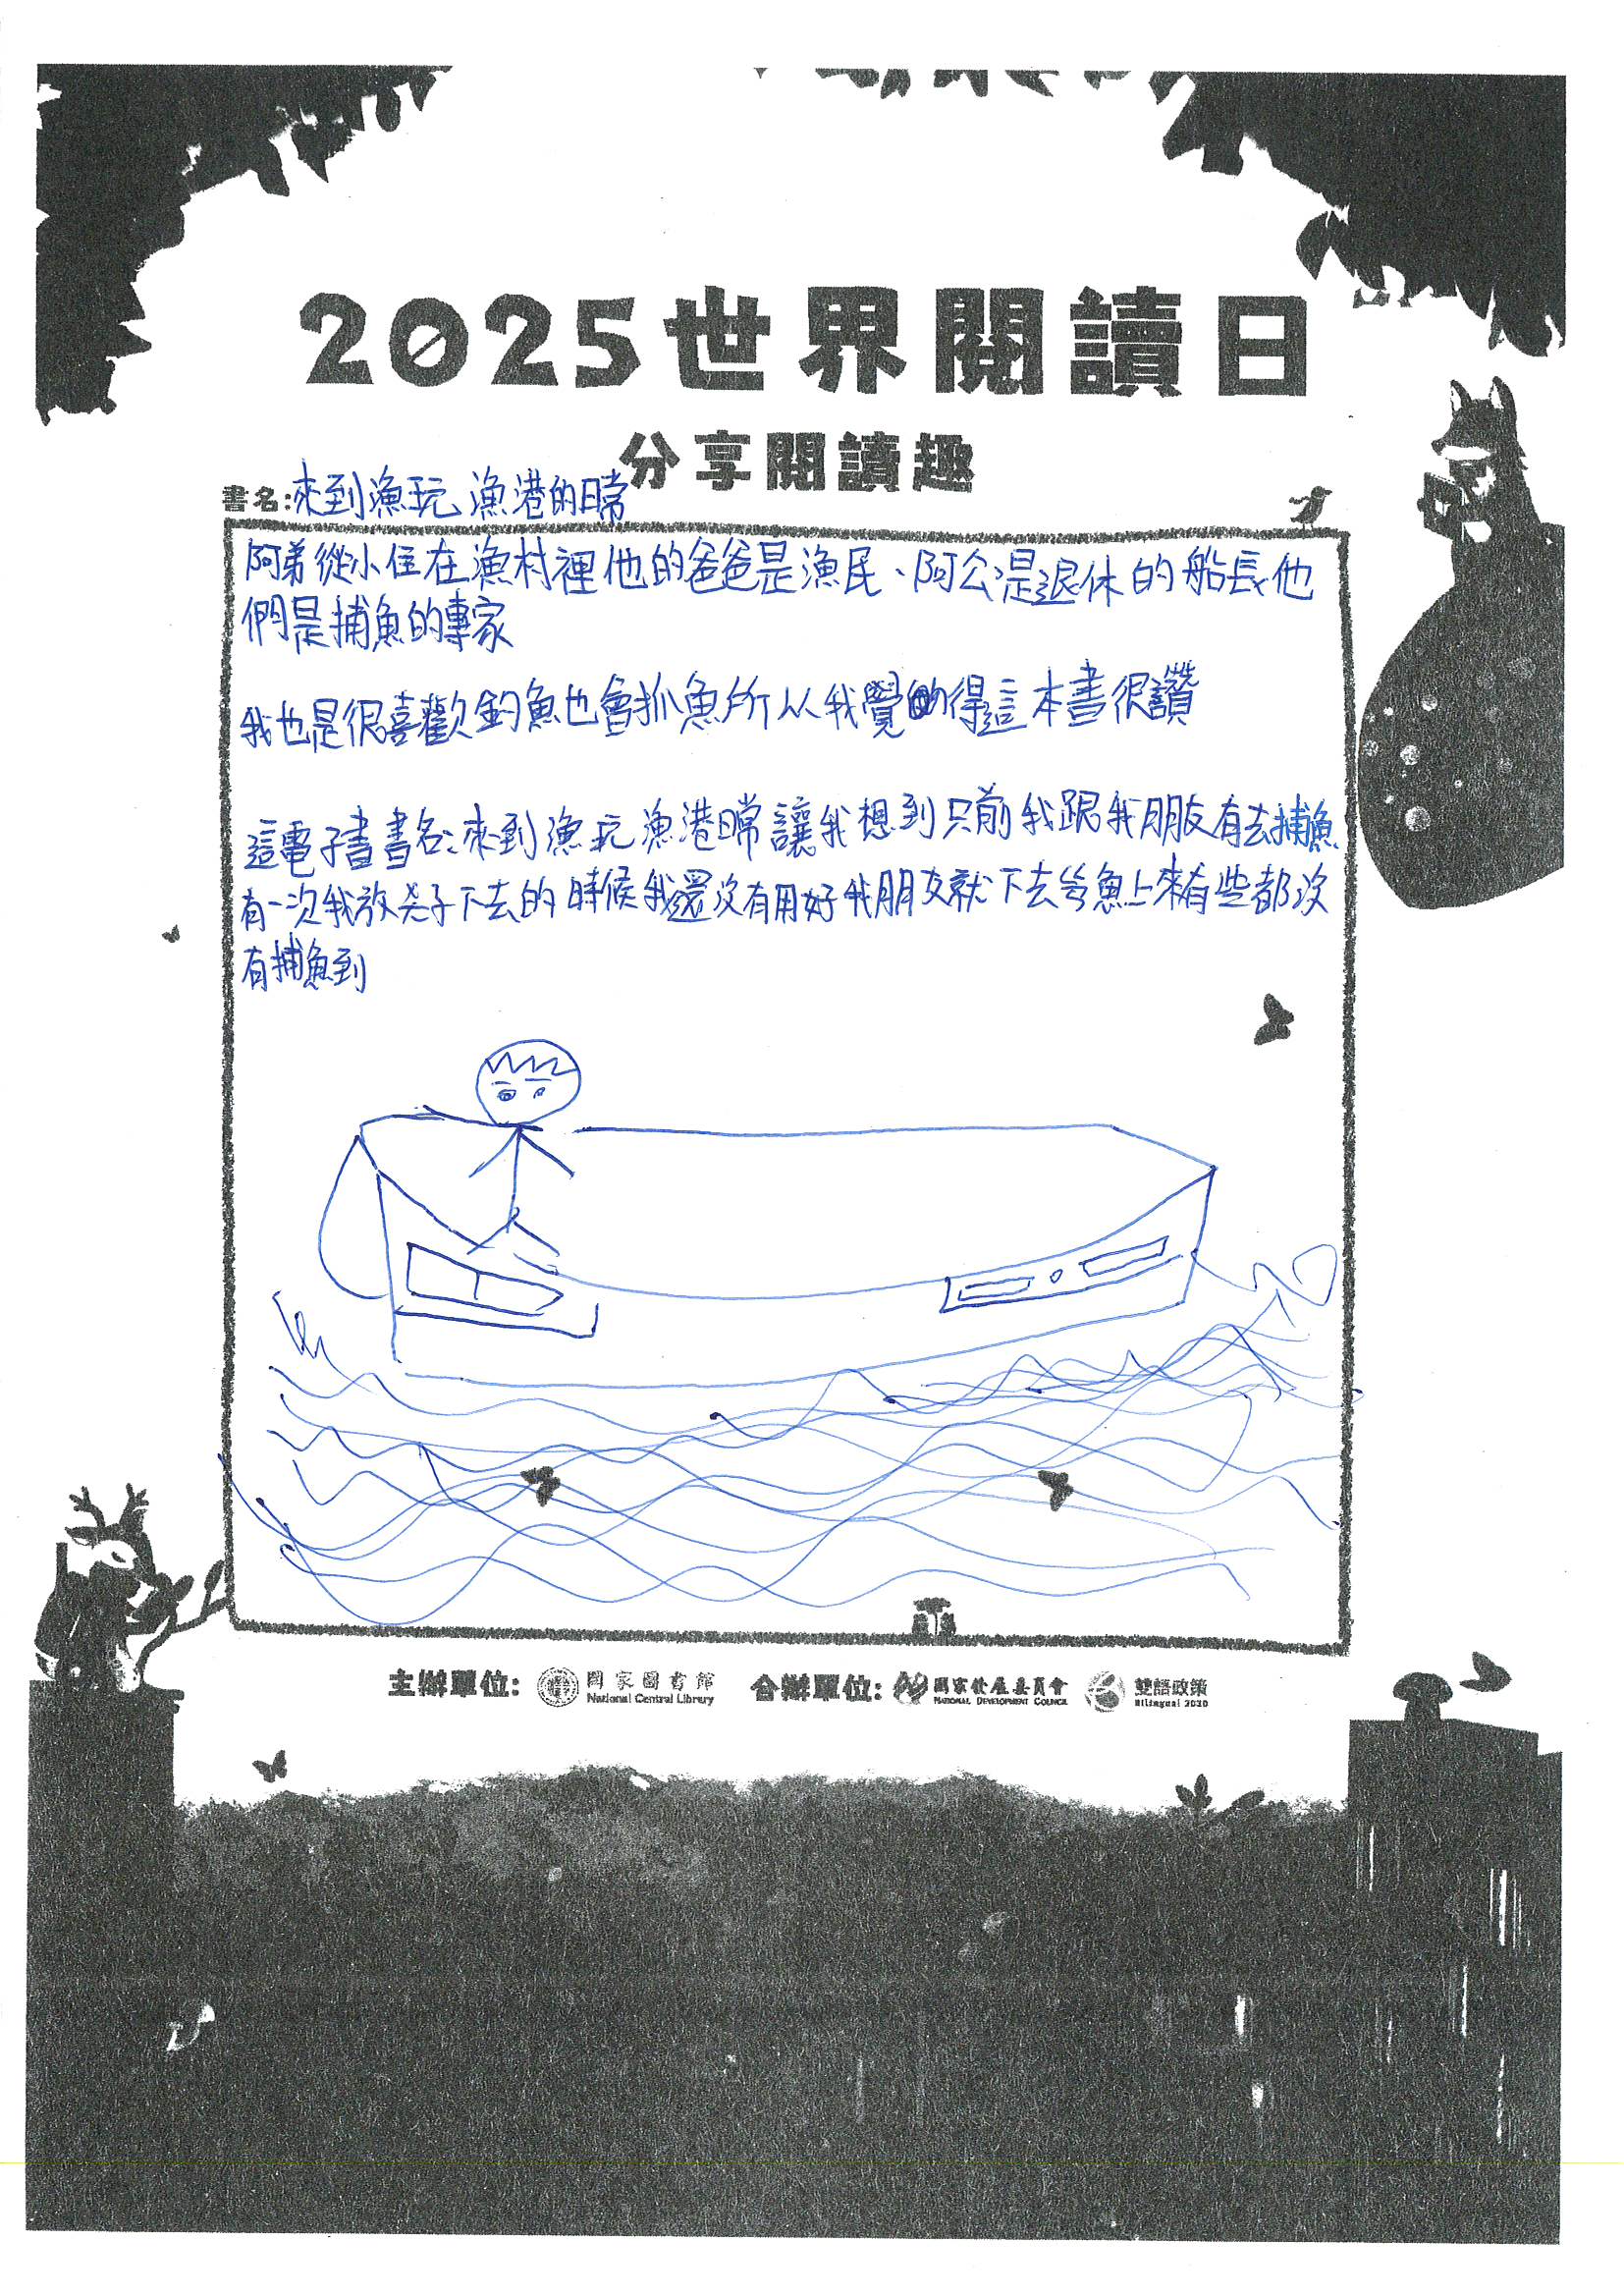 2025世界閱讀日
分享閱讀趣
書名:來到漁玩漁港的日常
阿弟從小住在漁村裡他的爸爸是漁民、阿公是退休的船長他
們是捕魚的專家
我也是很喜歡釣魚也會抓魚所以我覺的得這本書很讚
這電子書書名:來到漁玩漁港日常讓我想到只前我跟我朋友有去捕魚
有一次我放 子下去的時候我還沒有用好我朋友就下去 魚上來有些都沒
有捕魚到
主辦單位: 國家圖書館 National Central Library 合辦單位: 國家發展委員會 NATIONAL DEVELOPMENT COUNCIL 雙語政策 Bilingual 2030